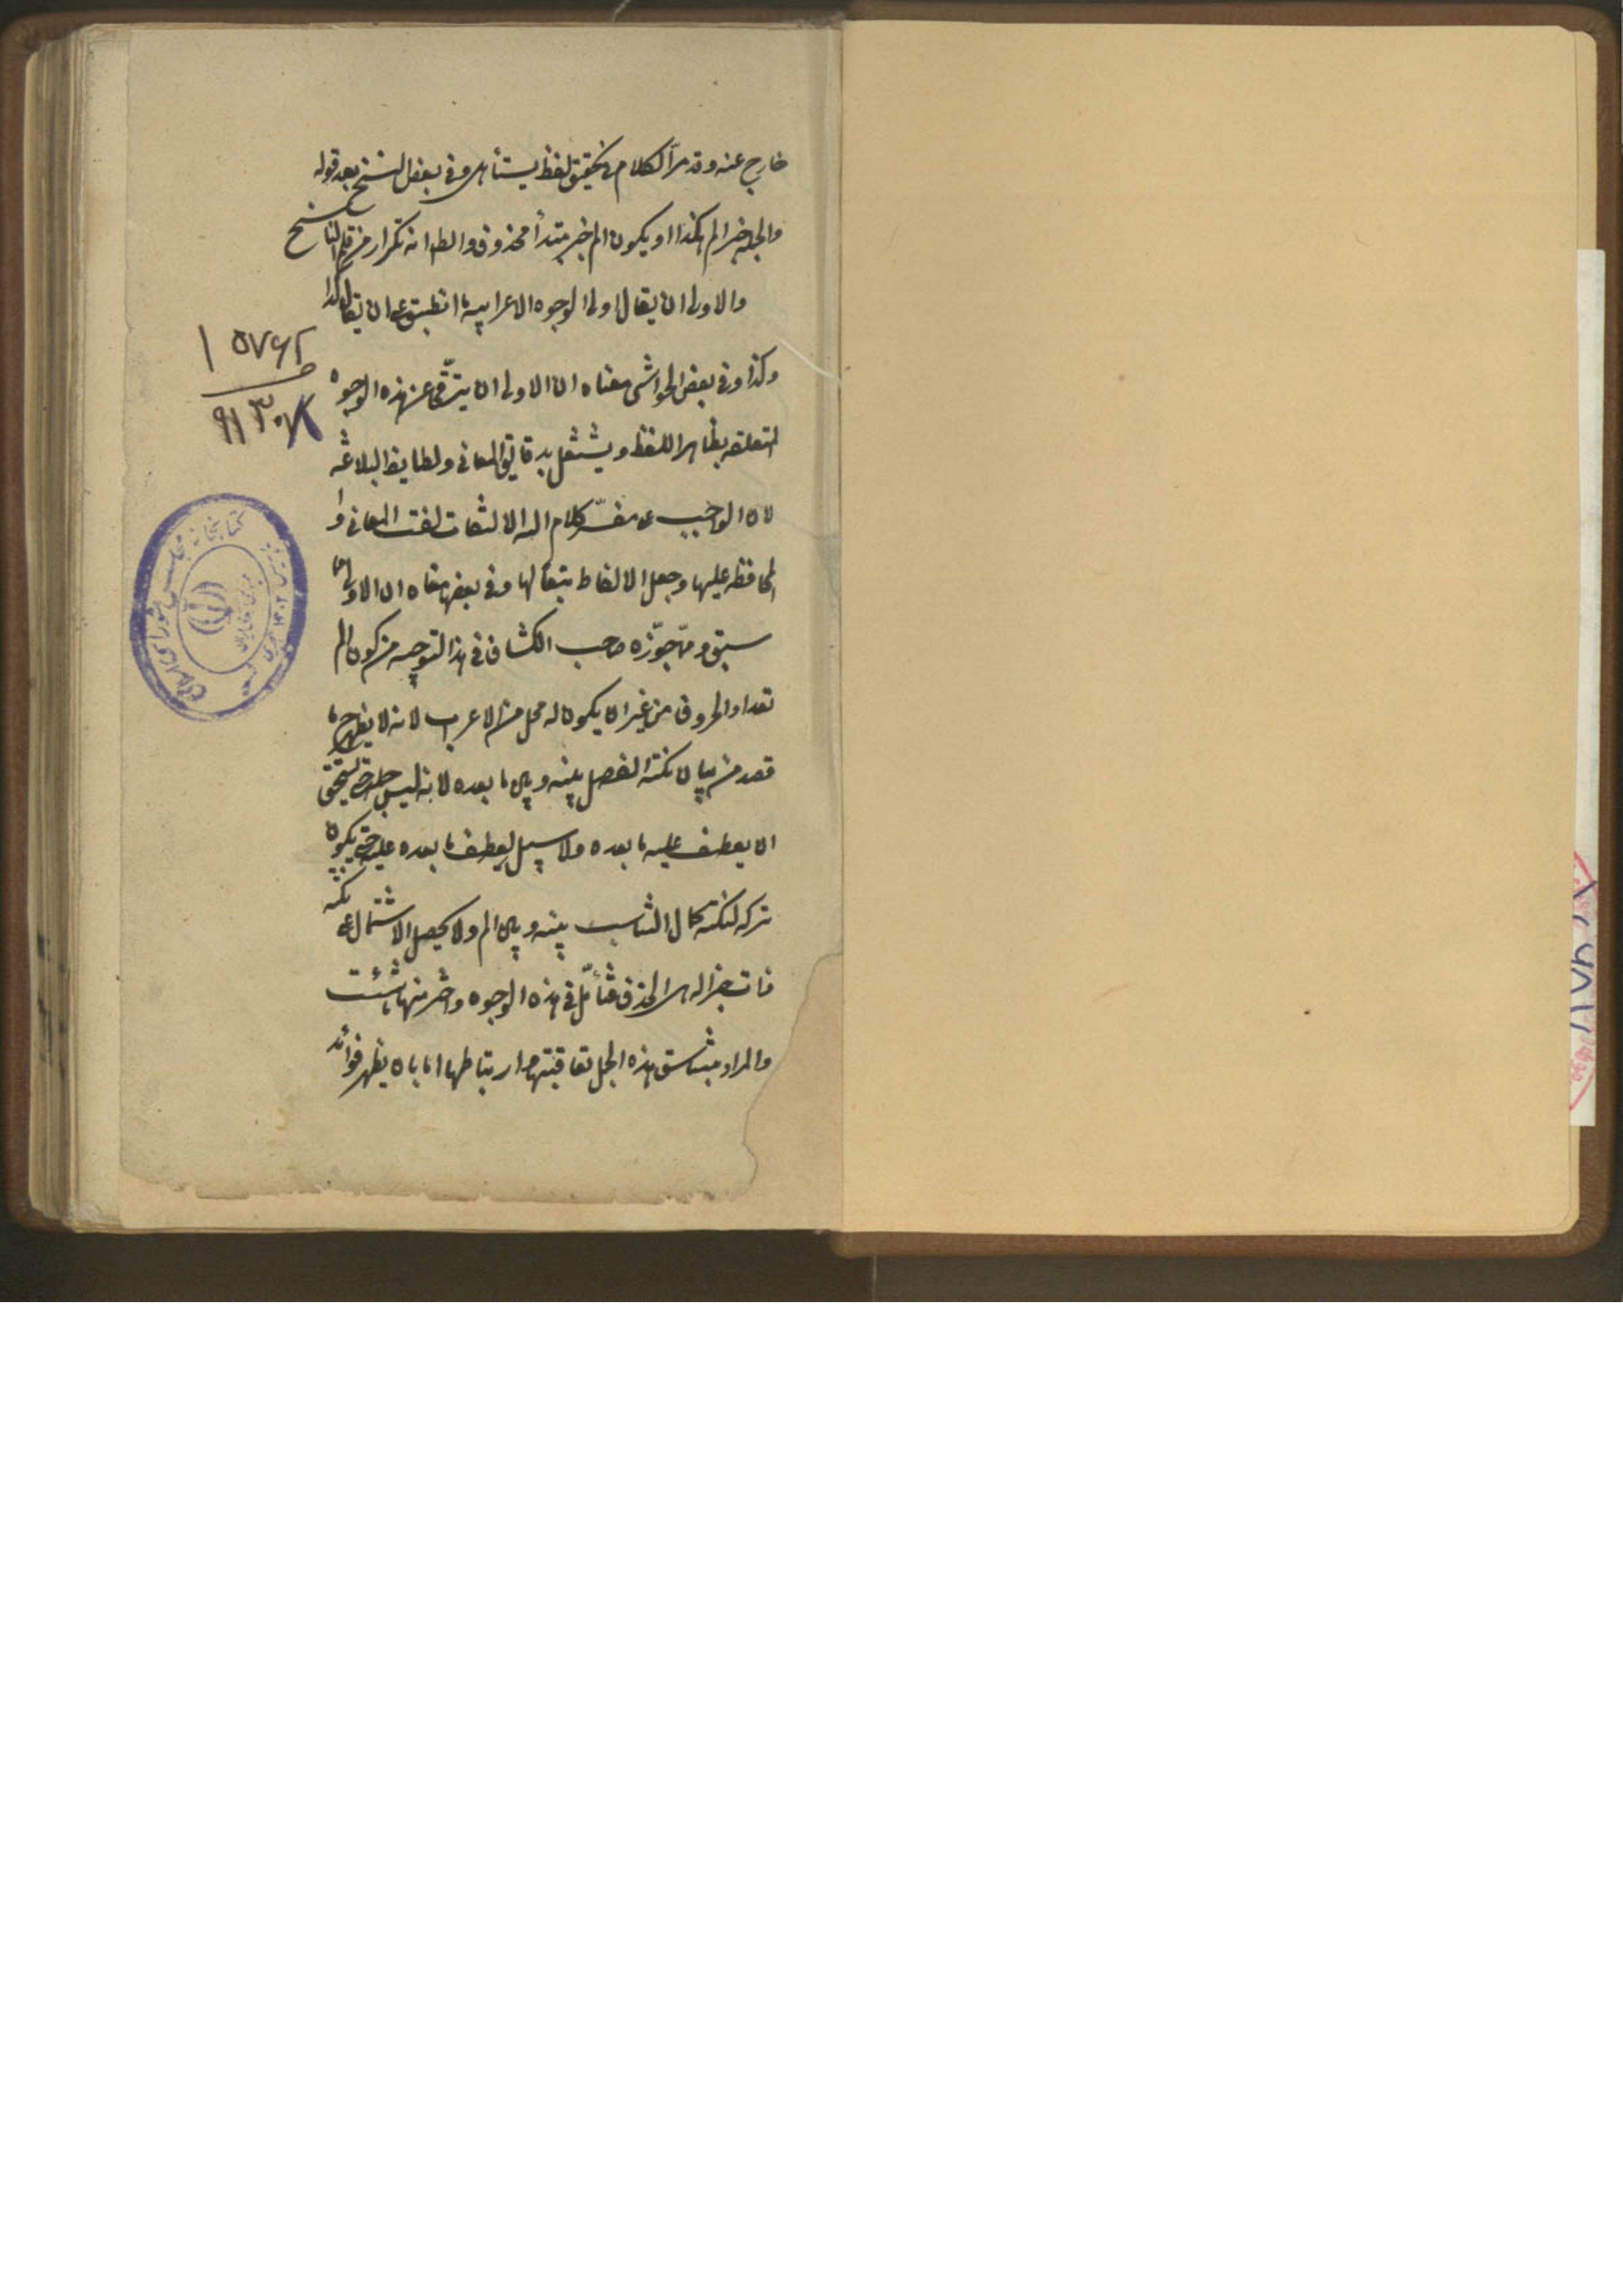 خارج عنه وقد مر الكلام فى تحقيق لفظ يستأهل وفى بعض النسخ بعد قوله
والجملة خبر الم هكذا او يكون الم خبر مبتدأ محذوف والظ انه تكرار من قلم الناسخ
والاولى ان يقال اولى الوجوه الاعرابية ما انطبق على ان يقال كذا
وكذا وفى بعض الحواشى معناه ان الاولى ان يترقى عن هذه الوجوه
المتعلقه بظاهر اللفظ ويشتغل بدقايق المعانى ولطايف البلاغه
لان الواجب على مفسر كلام الله الالتفات لفت المعانى و
المحافظه عليها وجعل الالفاظ تبعا لها وفى بعضها معناه ان الاولى مما
سبق ومما جوزه صاحب الكشاف فى هذا التوجيه من كون الم
تعداد الحروف من غير ان يكون له محل من الاعراب لانه لا يظهر ح ما
قصد من بيان نكتة الفصل بينه وبين ما بعده لانه ليس جملة حتى يستحق
ان يعطف عليه ما بعده ولا سبيل لعطف ما بعده عليه حتى يكون
تركه لنكتة كمال التناسب بينه وبين الم ولا يحصل الاشتمال على نكته
ذات جزاله الحذف فتأمل فى هذه الوجوه واختر منها ما شئت
والمراد بتناسق هذه الجمل تعاقبها وارتباطها اما بان يظهر فوائد
۱۵۷۶۲
۹۱۳۰۷
كتابخانه مجلس شوراى